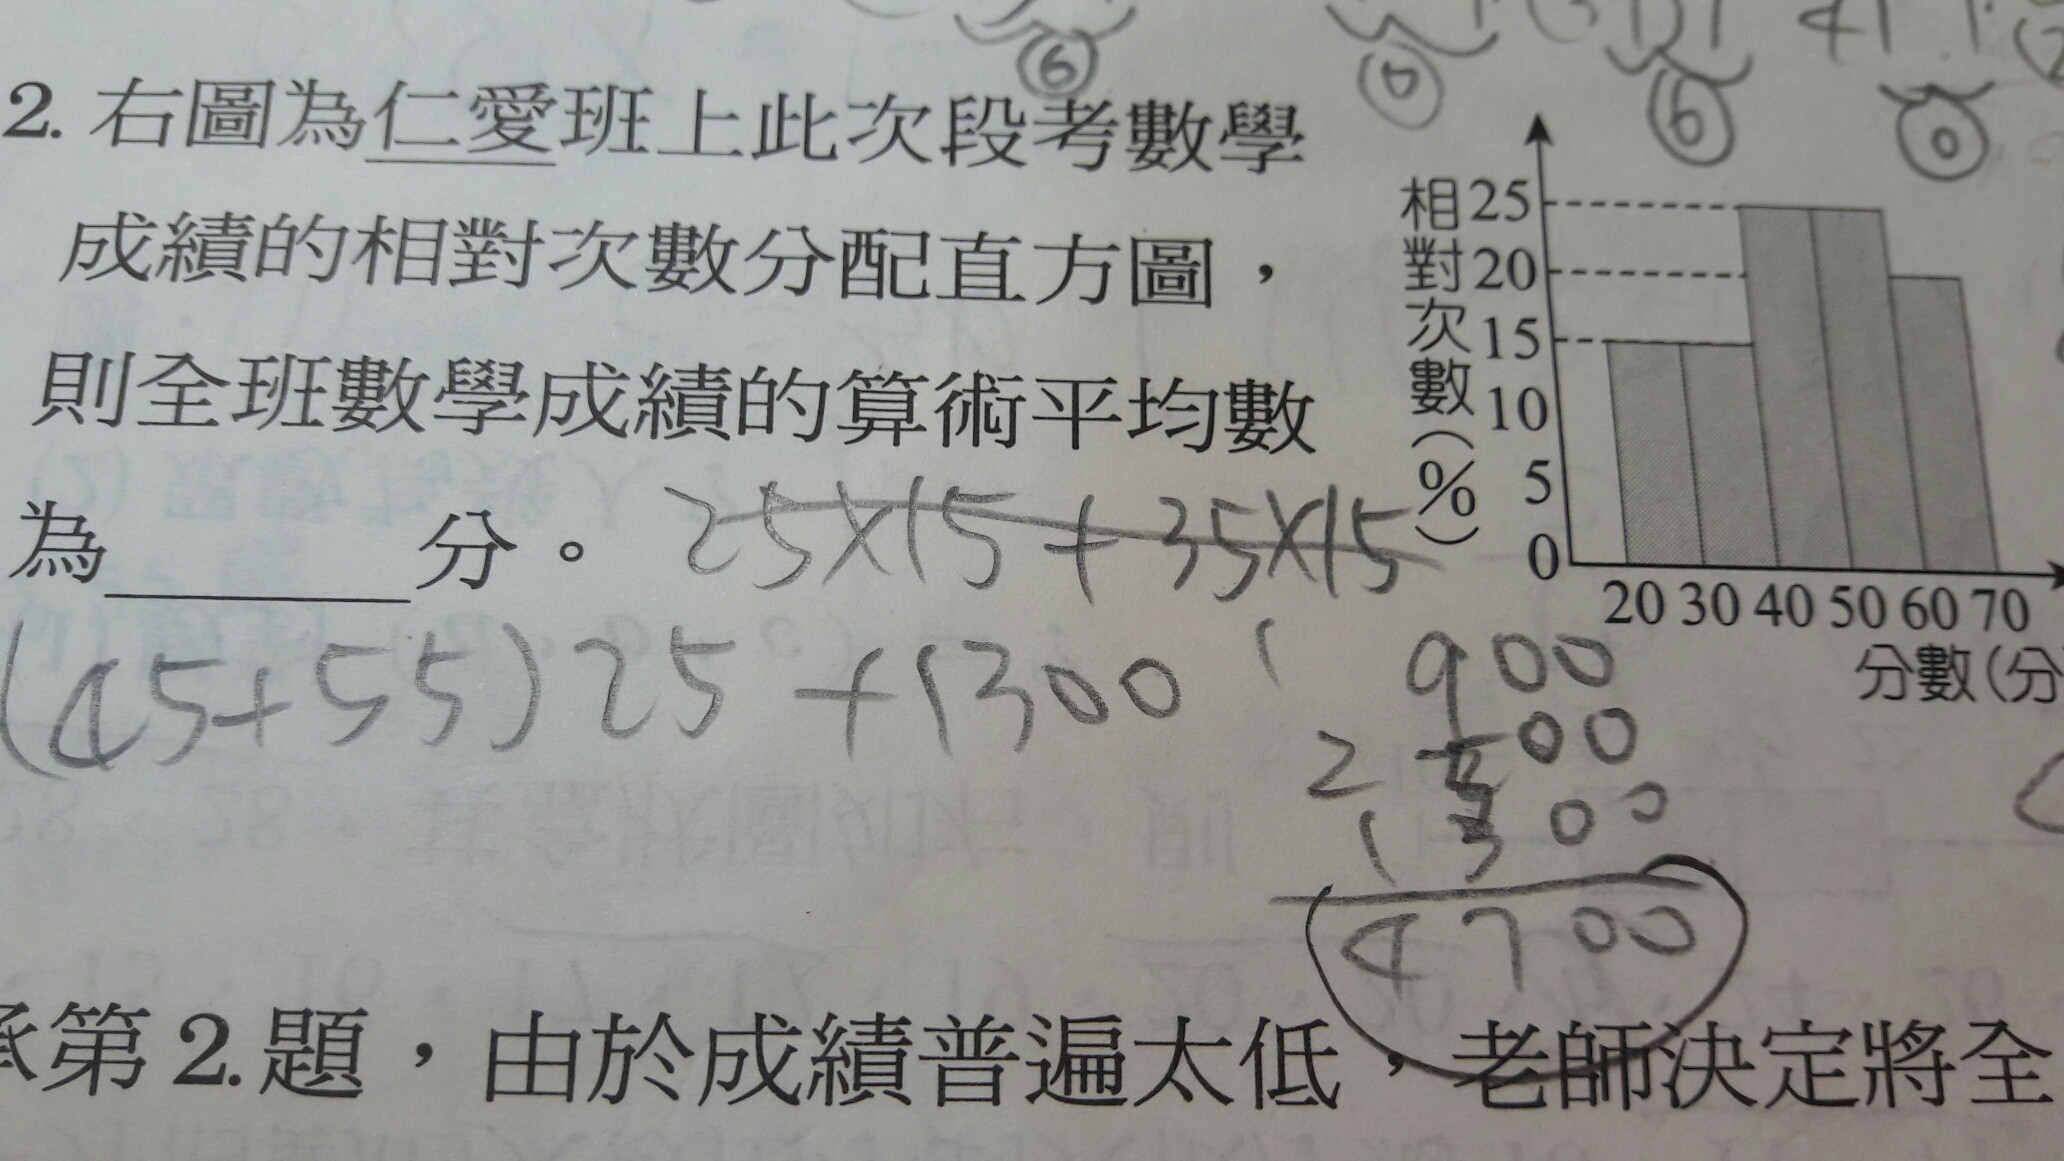 6 0 6 0
2. 右圖為仁愛班上此次段考數學
成績的相對次數分配直方圖，
則全班數學成績的算術平均數
為 分。
25×15+35×15
(45+55)25+1300
相對次數(%)
25
20
15
10
5
0
20 30 40 50 60 70
分數(分
900
2500
1300
4700
承第2.題，由於成績普遍太低，老師決定將全